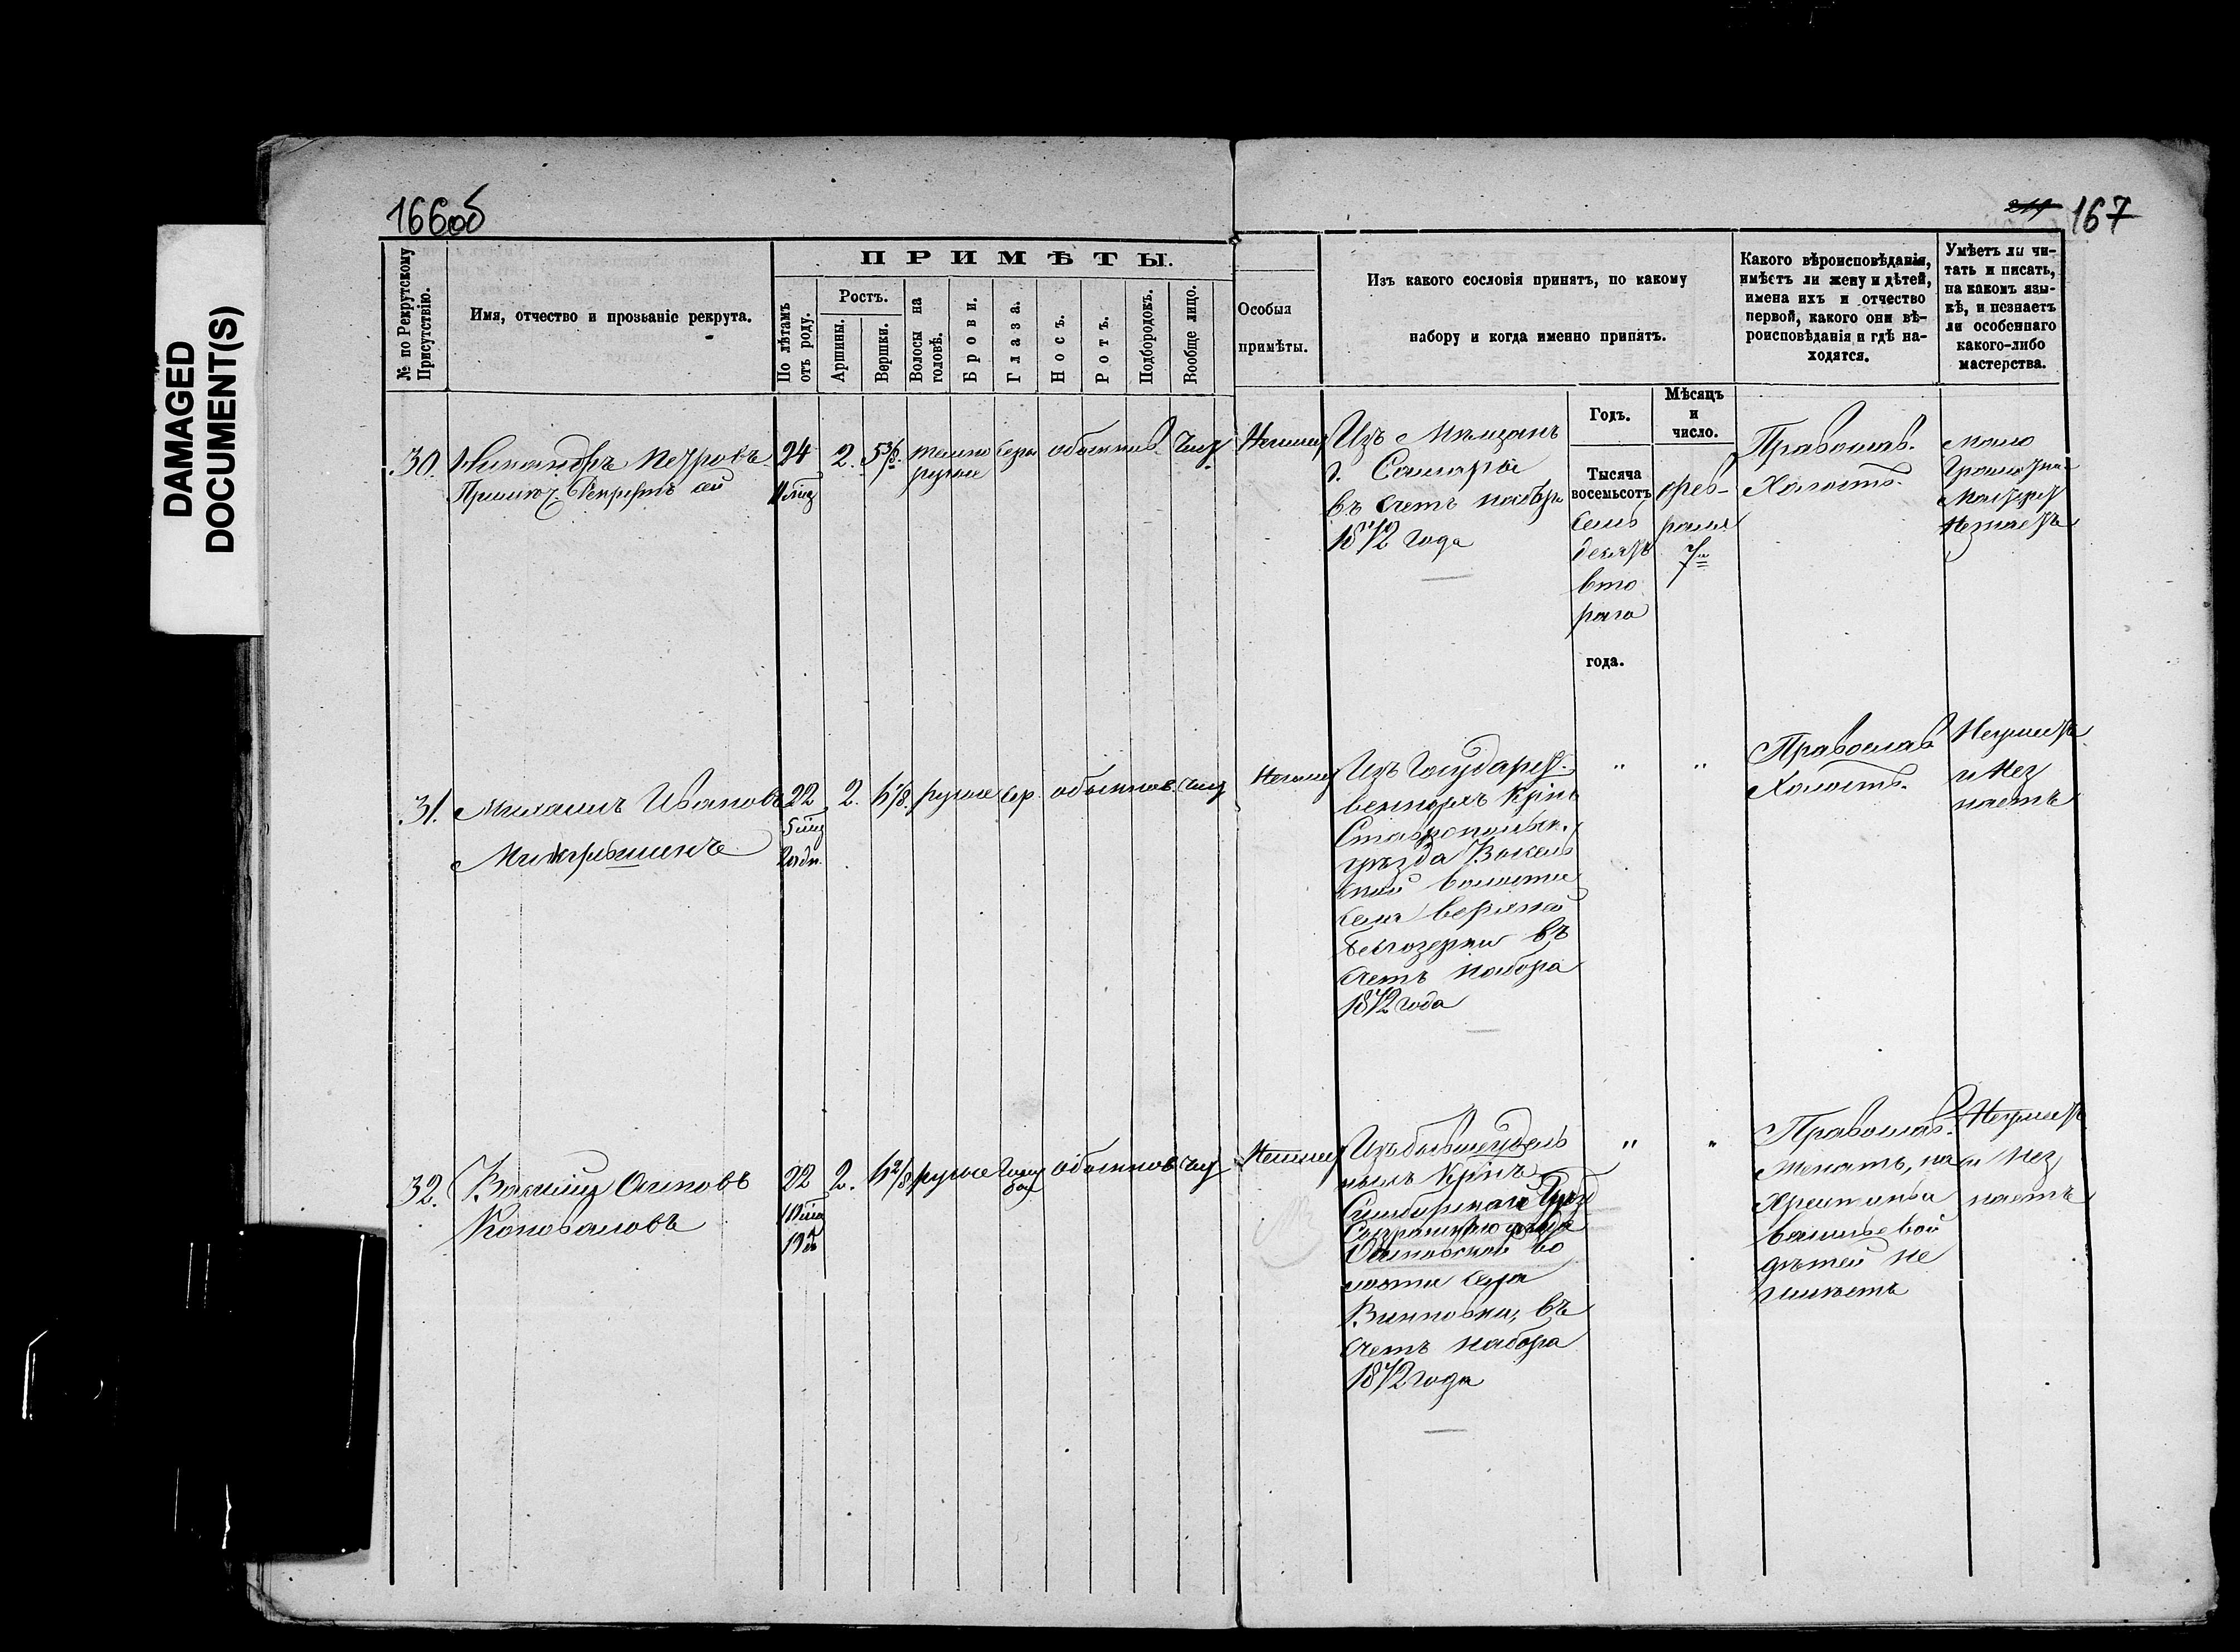 DAMAGED
DOCUMENT(S)
166об
211 167
№ по Рекрутскому Присутствію.
Имя, отчество и прозваніе рекрута.
ПРИМѢТЫ.
По лѣтамъ отъ роду.
Ростъ.
Аршины.
Вершки.
Волосы на головѣ.
Брови.
Глаза.
Носъ.
Ротъ.
Подбородокъ.
Вообще лицо.
Особыя
примѣты.
Изъ какого сословія принятъ, по какому
набору и когда именно принятъ.
Годъ.
Мѣсяцъ
и
число.
Какого вѣроисповѣданія,
имѣетъ ли жену и дѣтей,
имена ихъ и отчество
первой, какого они вѣ-
роисповѣданія и гдѣ на-
ходятся.
Умѣетъ ли чи-
тать и писать,
на какомъ язы-
кѣ, и незнаетъ
ли особеннаго
какого-либо
мастерства.
30. Никандръ Петровъ
24 2. 5 3/8. темно русые серы обыкнов. чист
Изъ Мѣщанъ
г. Самары
въ счетъ набора
1872 года
Тысяча
восемьсотъ
семь
десятъ
вто
раго
года.
фев-
раля
7го
Православ.
Холостъ.
мало
31. Михаилъ Ивановъ
22 2. русые сер. обыкнов. чист
Изъ Государст-
венныхъ Крѣс
Ставропольск.
уѣзда
ской волости
села верхней
Белозерки въ
счетъ набора
1872 года
" "
Православ
Холостъ.
Неумѣетъ
и нез
наетъ
32. Василій Осиповъ
Коноваловъ
22 2. 6 2/8 русые Голу
бые обыкнов чист
Изъ бывше удель
ныхъ Крѣс
Симбирской Губ
Сызранскаго уезда
Осиновской во
лости села
Винновки, въ
счетъ набора
1872 года
" "
Православ.
Женатъ, на
васильевой
дѣтей не
имѣетъ
Неумѣетъ
и нез
наетъ